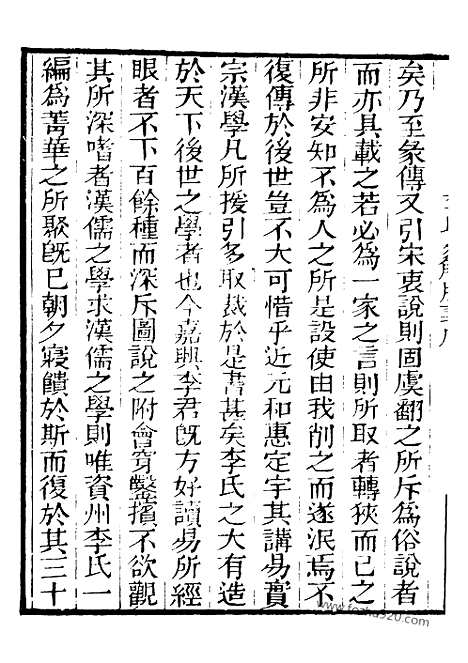 矣乃至彖傳又引宋衷說則固虞翻之所斥為俗說者
而亦具載之若必為一家之言則所取者轉狹而已之
所非安知不為人之所是設使由我削之而遂泯焉不
復傳於後世豈不大可惜乎近元和惠定宇其講易實
宗漢學凡所援引多取裁於是書甚矣李氏之大有造
於天下後世之學者也今嘉興李君旣方好讀易所經
眼者不下百餘種而深斥圖說之附會穿鑿擯不欲觀
其所深嗜者漢儒之學求漢儒之學則唯資州李氏一
編為菁華之所聚旣已朝夕寢饋於斯而復於其三十
www.fozhu920.com